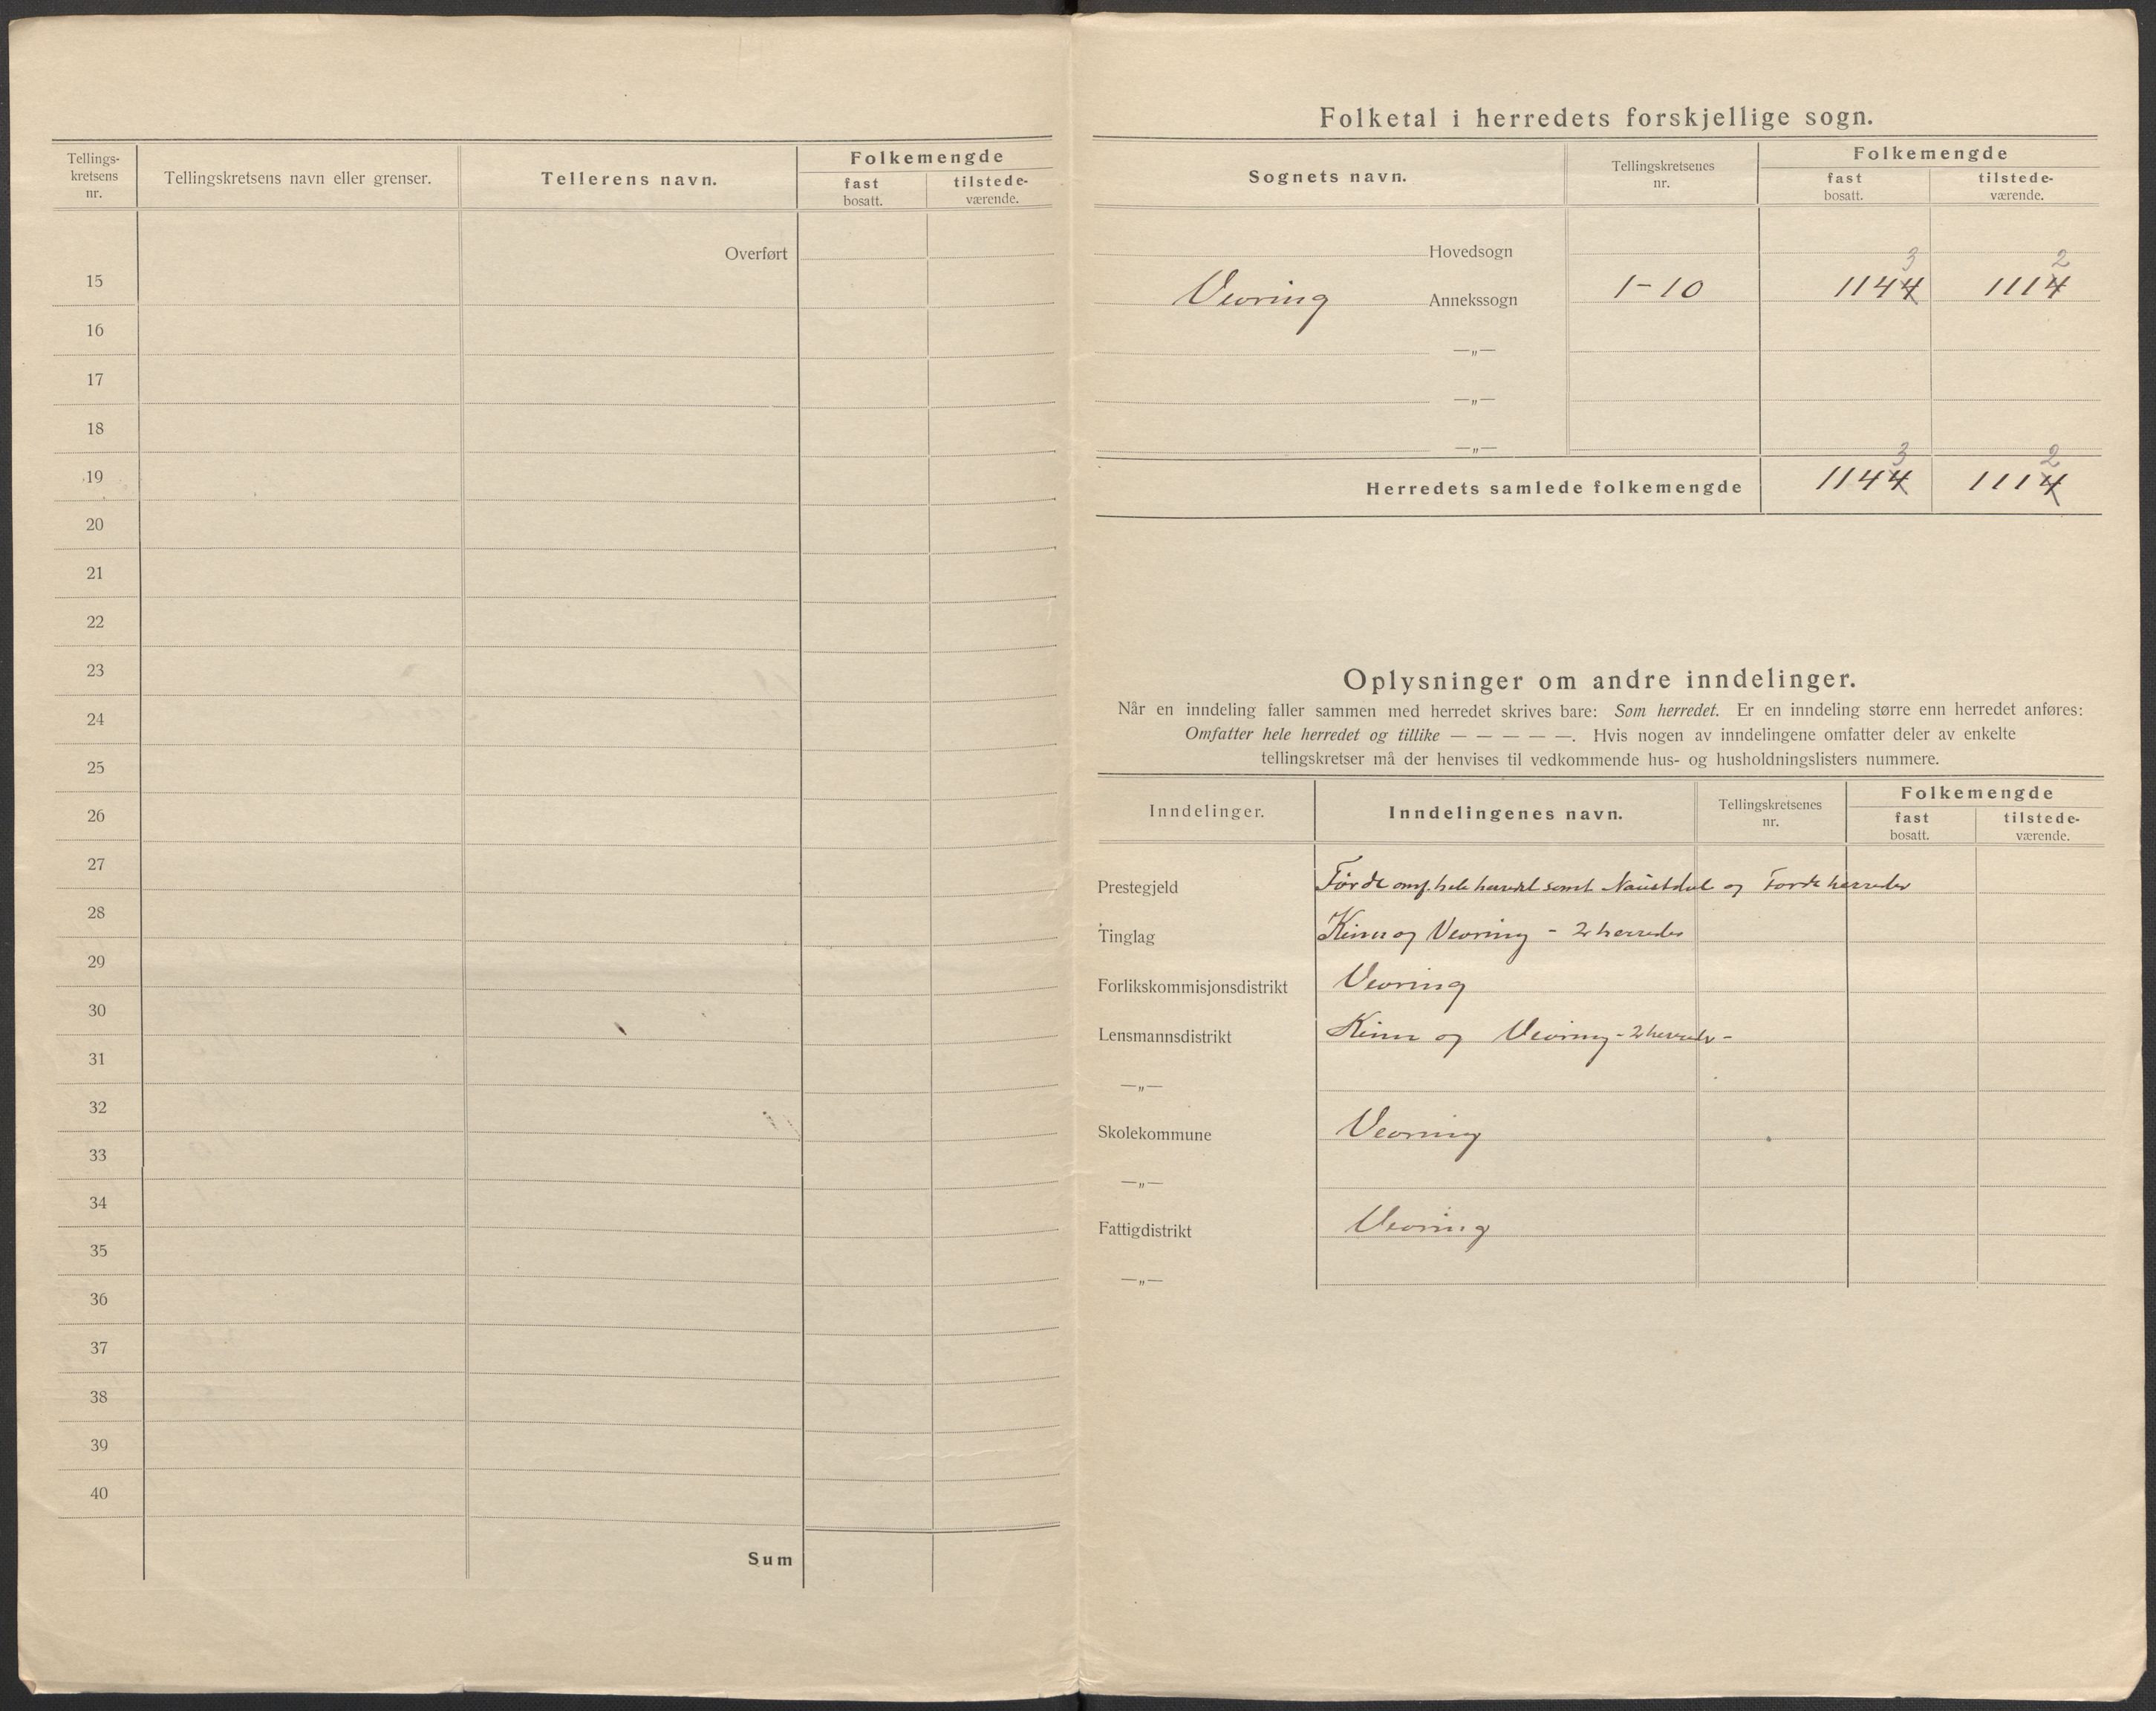 Tellings-
kretsens
nr.
Tellingskretsens navn eller grenser.
Tellerens navn.
Folkemengde
fast
bosatt.
tilstede-
værende.
Overført
15
16
17
18
19
20
21
22
23
24
25
26
27
28
29
30
31
32
33
34
35
36
37
38
39
40
Sum
Folketal i herredets forskjellige sogn.
Sognets navn.
Tellingskretsenes
nr.
Folkemengde
fast
bosatt.
tilstede-
værende.
Hovedsogn
3 2
Vevring Annekssogn 1-10 1144 1114
—„—
—„—
—„—
3 2
Herredets samlede folkemengde 1144 1114
Oplysninger om andre inndelinger.
Når en inndeling faller sammen med herredet skrives bare: Som herredet. Er en inndeling større enn herredet anføres:
Omfatter hele herredet og tillike — — — — —. Hvis nogen av inndelingene omfatter deler av enkelte
tellingskretser må der henvises til vedkommende hus- og husholdningslisters nummere.
Inndelinger.
Inndelingenes navn.
Tellingskretsenes
nr.
Folkemengde
fast
bosatt.
tilstede-
værende.
Prestegjeld Førde omf. hele herredet samt Naustdal og Førde herreder
Tinglag Kinn og Vevring - 2 herreder
Forlikskommisjonsdistrikt Vevring
Lensmannsdistrikt Kinn og Vevring - 2 herreder -
—„—
Skolekommune Vevring
—„—
Fattigdistrikt Vevring
—„—